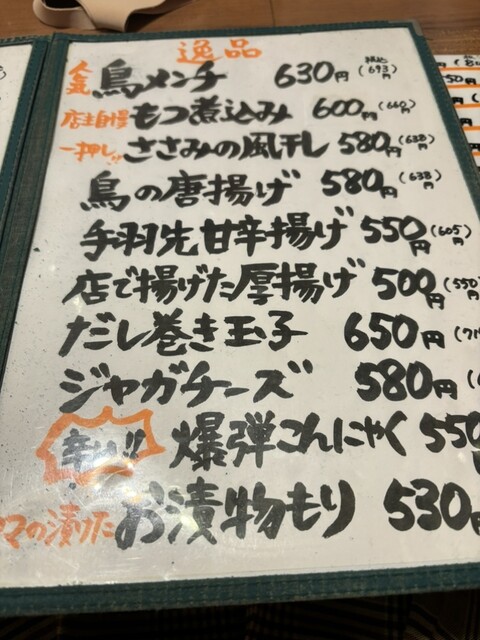 逸品
人気 鳥メンチ 630円 (税込693円)
店主自慢 もつ煮込み 600円 (660円)
一押し!! ささみの風干し 580円 (638円)
鳥の唐揚げ 580円 (638円)
手羽先甘辛揚げ 550円 (605円)
店で揚げた厚揚げ 500円 (550
だし巻き玉子 650円 (71
ジャガチーズ 580円 (
辛い!! 爆弾こんにゃく 550
マの漬けた お漬物もり 530円